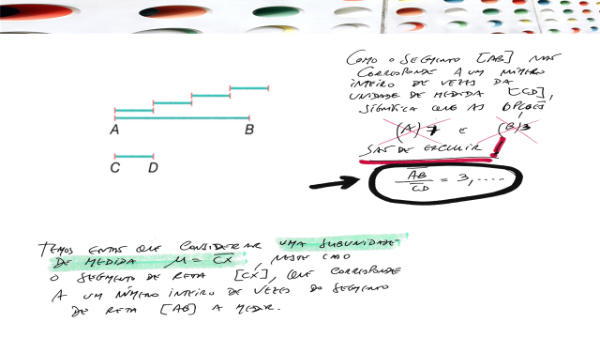 COMO O SEGMENTO [AB] NÃO
CORRESPONDE A UM NÚMERO
INTEIRO DE VEZES DA
UNIDADE DE MEDIDA [CD],
SIGNIFICA QUE AS OPÇÕES
(A) 7 e (B) 3
SÃO DE EXCLUIR
AB/CD = 3,....
A B
C D
TEMOS ENTÃO QUE CONSIDERAR UMA SUBUNIDADE
DE MEDIDA μ = CX, NESTE CASO
O SEGMENTO DE RETA [CX], QUE CORRESPONDE
A UM NÚMERO INTEIRO DE VEZES DO SEGMENTO
DE RETA [AB] A MEDIR.